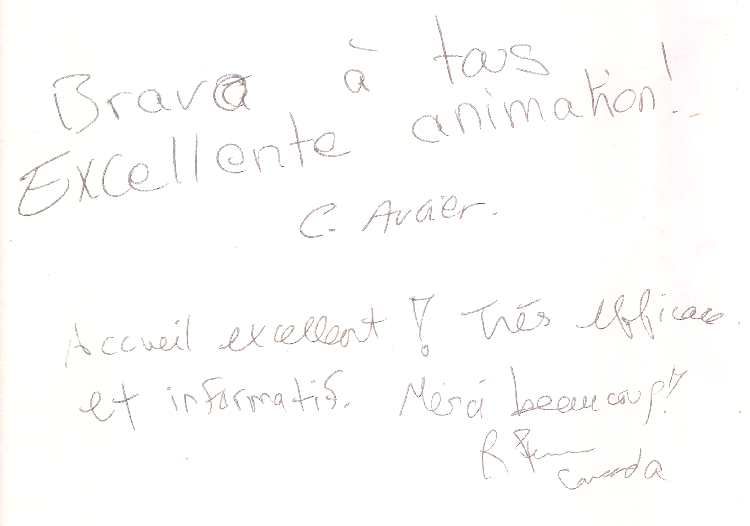 Bravo à tous
Excellente animation!
C. Augier.
Accueil excellent ! Très efficace
et informatif. Merci beaucoup!!
R
Canada